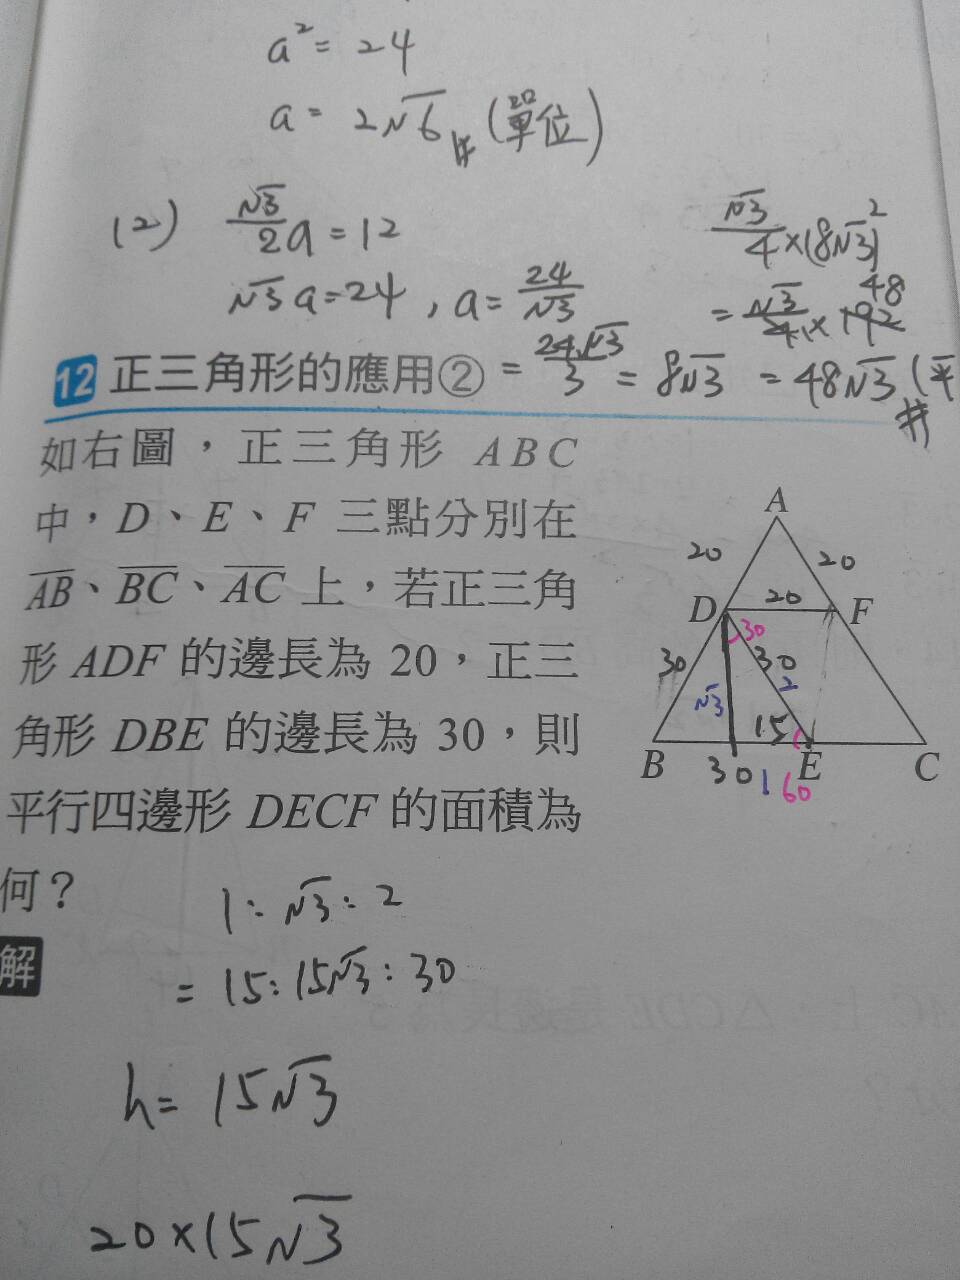 a² = 24
a = 2√6 # (單位)
(2) √3/2 a = 12
√3 a = 24 , a = 24/√3
= 24√3/3 = 8√3
√3/4 × (8√3)²
= √3/4 × 192 48
= 48√3 (平
#
12 正三角形的應用②
如右圖，正三角形 ABC
中，D、E、F 三點分別在
AB、BC、AC 上，若正三角
形 ADF 的邊長為 20，正三
角形 DBE 的邊長為 30，則
平行四邊形 DECF 的面積為
何？
A
20 20
D 20 F
30
30 30
2
√3
15
B 30 1 E C
60
解
1 : √3 : 2
= 15 : 15√3 : 30
h = 15√3
20 × 15√3